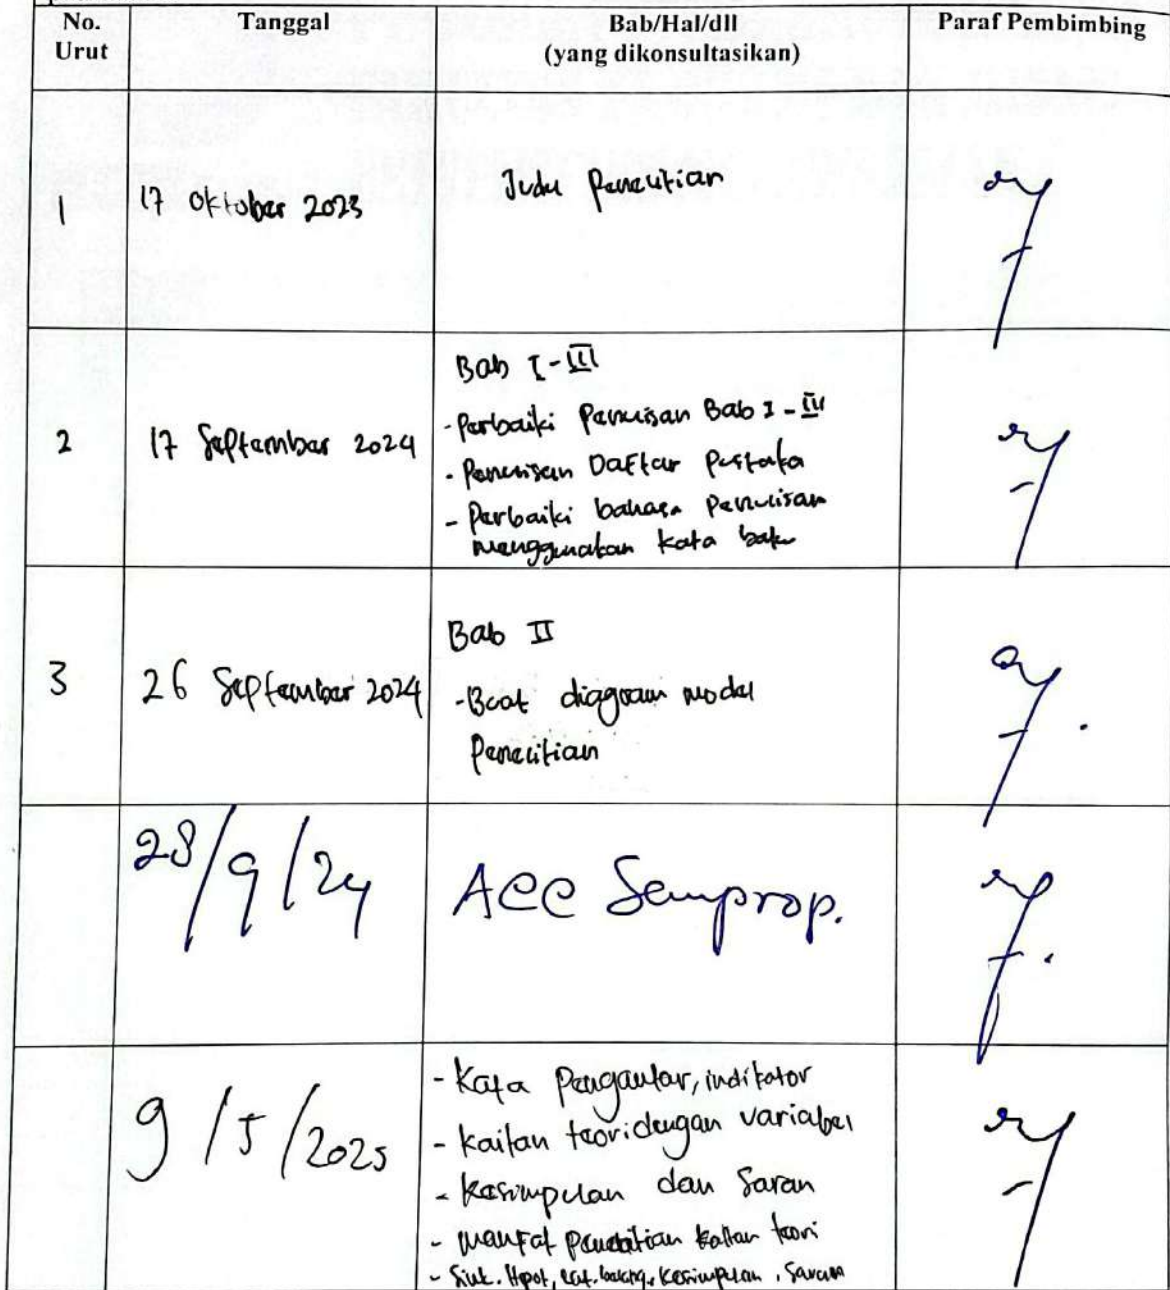 No. Urut
Tanggal
Bab/Hal/dll
(yang dikonsultasikan)
Paraf Pembimbing
1
17 Oktober 2023
Judul Penelitian
2
17 September 2024
Bab I - III
- Perbaiki Penulisan Bab I - III
- Penulisan Daftar Pustaka
- Perbaiki bahasa Penulisan
menggunakan kata baku
3
26 September 2024
Bab II
- Buat diagram model
Penelitian
28/9/24
ACC Semprop.
9/5/2025
- Kata Pengantar, indikator
- kaitan teori dengan variabel
- Kesimpulan dan Saran
- manfat penelitian kaitan teori
- Hipot, Lat. belakg, Kesimpulan, Saran